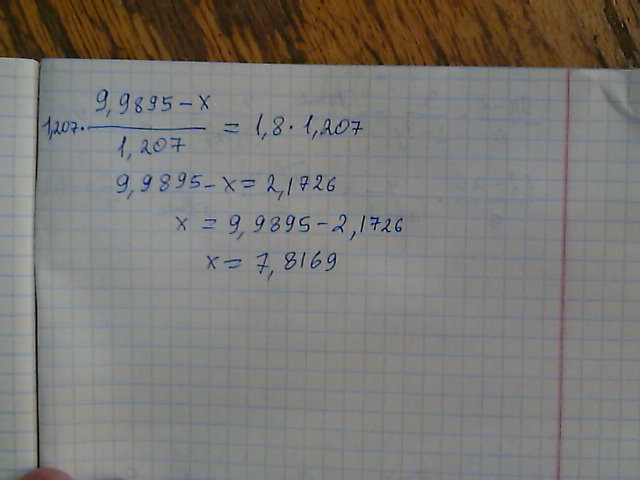 1,207 · (9,9895 - x) / 1,207 = 1,8 · 1,207
9,9895 - x = 2,1726
x = 9,9895 - 2,1726
x = 7,8169